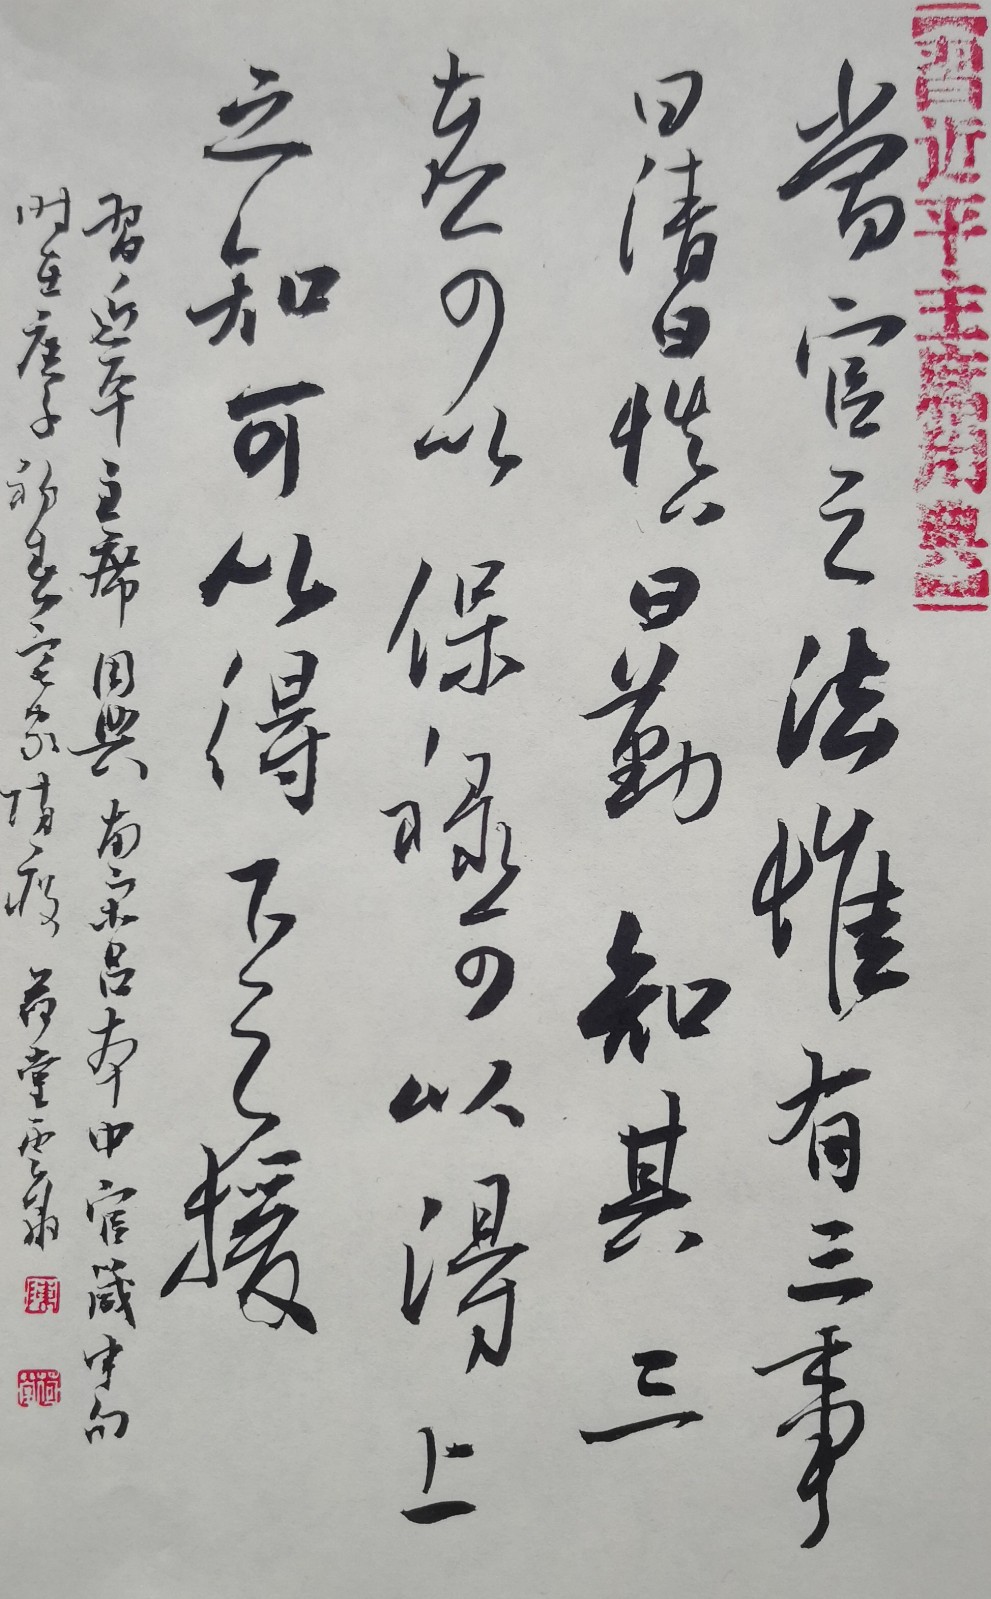 習近平主席用典
當官之法惟有三事
曰清曰慎曰勤知其三
者可以保祿可以得上
之知可以得下之援
習近平主席用典南宋吕本中官箴中句
时在庚子初春宅家防疫荷堂
陳
荷堂